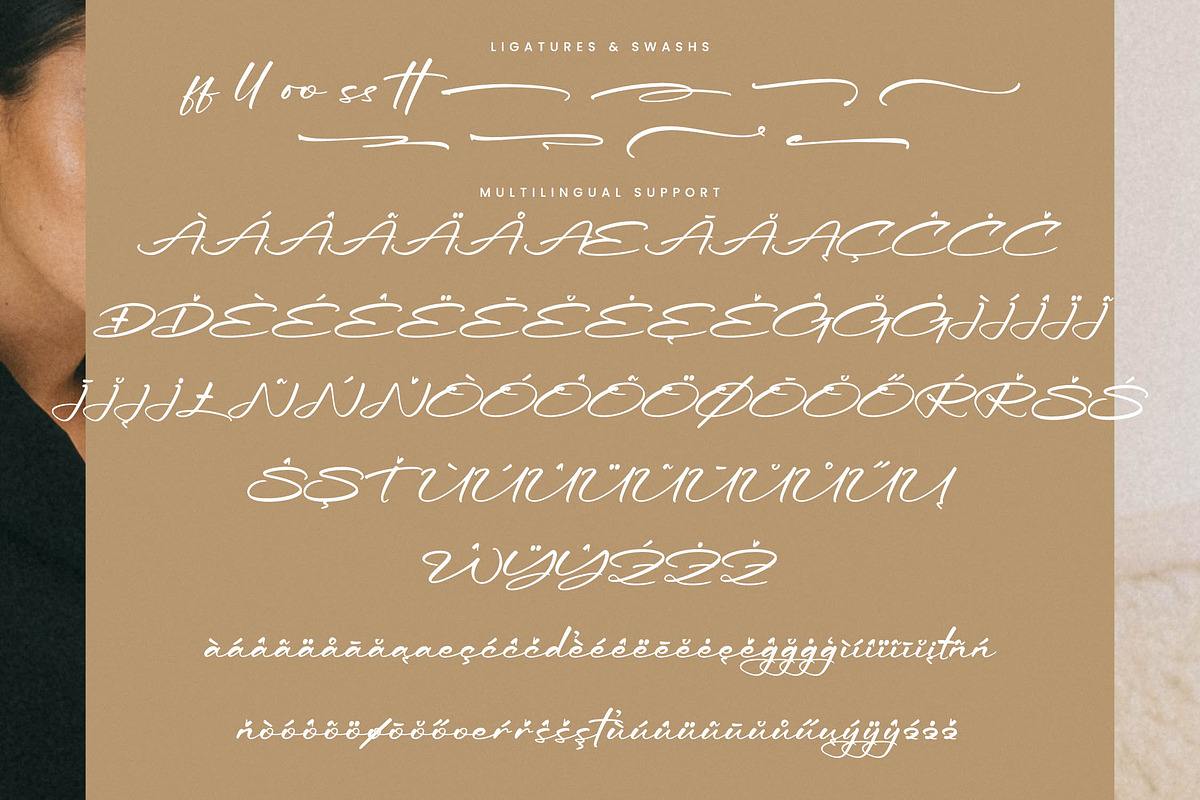 LIGATURES & SWASHS
ff ll oo ss tt
MULTILINGUAL SUPPORT
ÀÁÂÃÄÅÆĀĂĄÇĈĊČ
ĐĎÈÉÊËĒĔĖĘĚĜĞĠÌÍÎÏĨ
ĪĬĮİŁÑŃŇÒÓÔÕÖØŌŎŐŔŘŠŚ
ŜŞŤÙÚÛÜŨŪŬŮŰŲ
ŴŸŶŹŻŽ
àáâãäåāăąæçćĉčďèéêëēĕėęěĝğġģìíîïĩīĭįťñń
ňòóôõöøōŏőœŕřŝšşťùúûüũūŭůűųýÿŷźżž